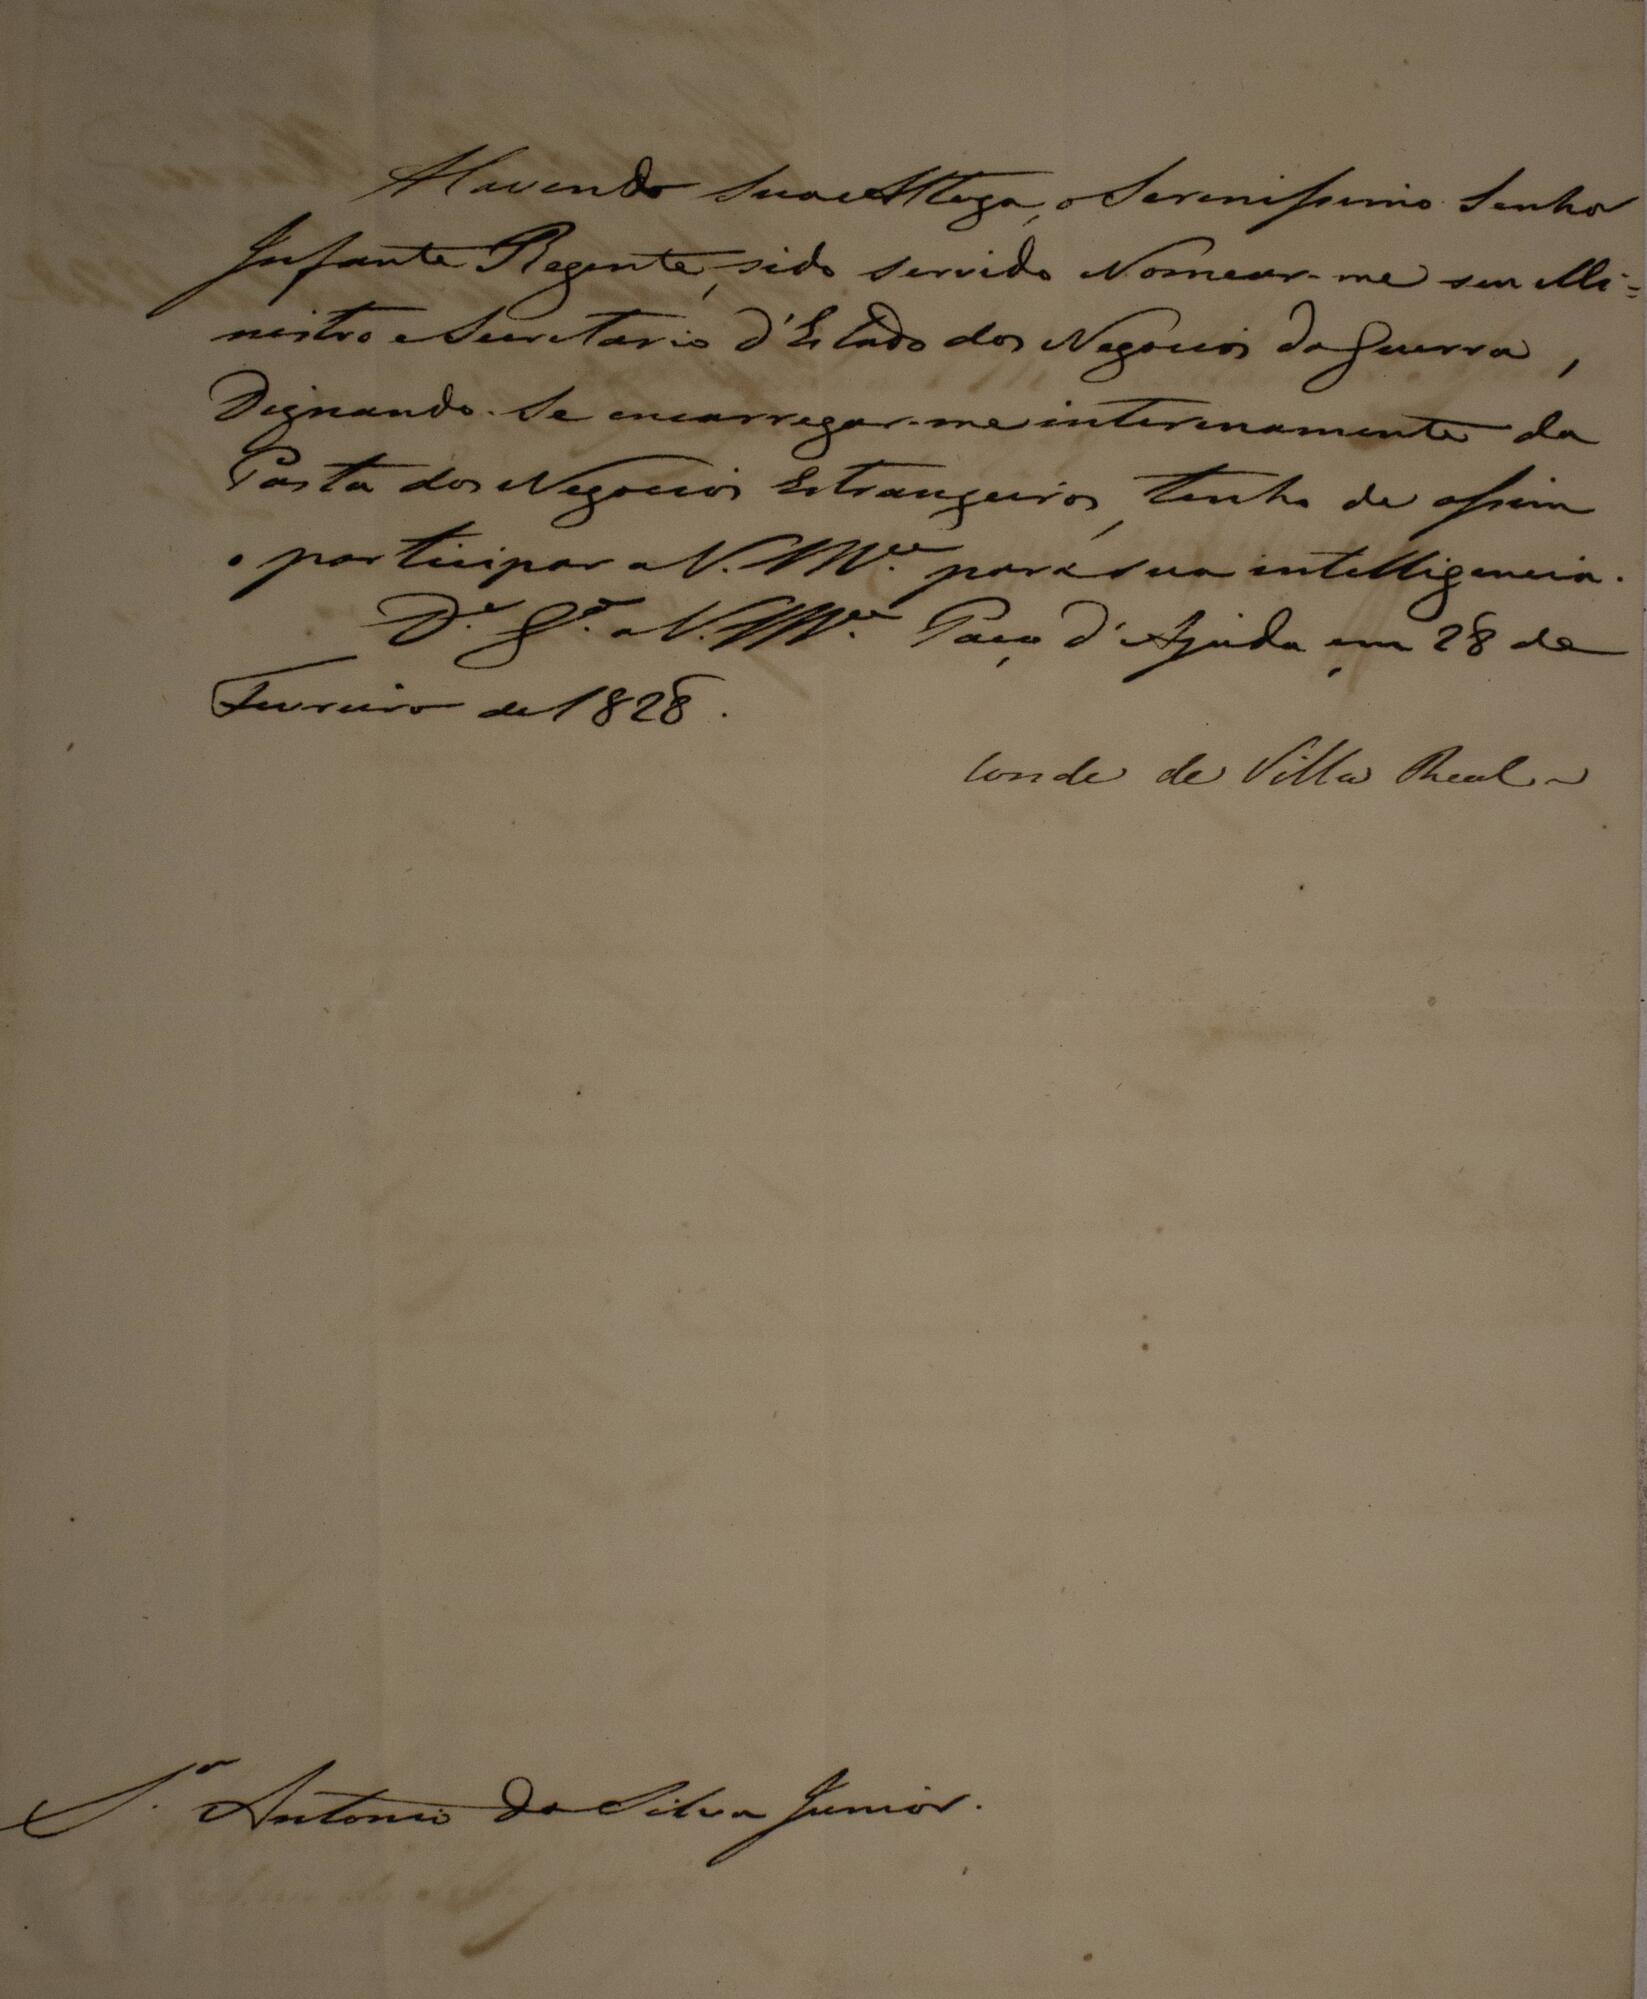 Havendo Sua Alteza, o Serenissimo Senhor
Infante Regente, sido servido Nomear-me seu Mi=
nistro e Secretario d'Estado dos Negocios da Guerra,
Dignando-Se encarregar-me interinamente da
Pasta dos Negocios Estrangeiros, tenho de assim
o participar a V. M.ce para sua intelligencia.
D.s G.e a V. M.ce Paço d'Ajuda em 28 de
Fevereiro de 1828.
Conde de Villa Real
S.r Antonio da Silva Junior.